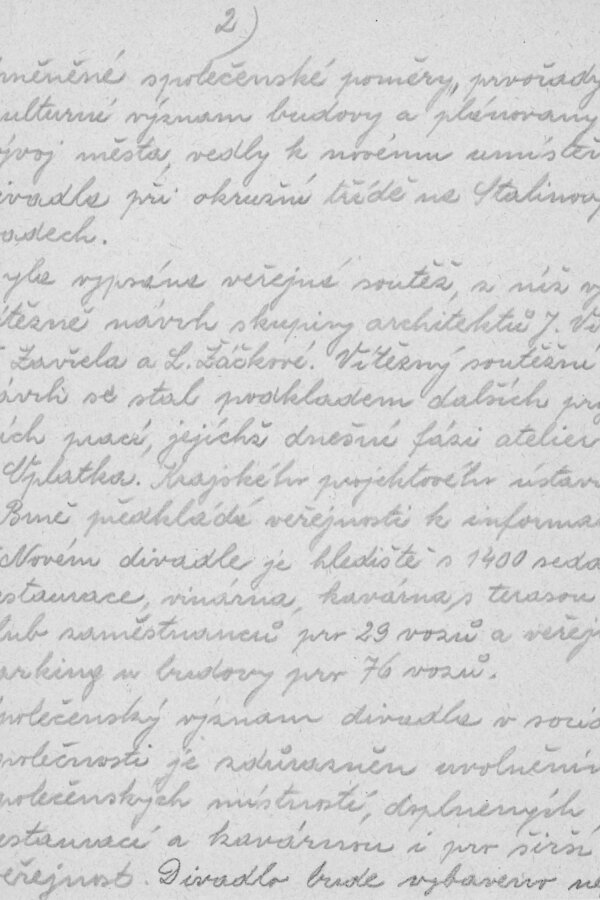 2)
změněné společenské poměry, prvořadý
kulturné význam budovy a plánovany
vývoj města, vedly k novému umístě
divadla při okružní třídě na Stalinový
sadech.
Byla vypsána veřejná soutěž, z níž vy
vítězně návrh skupiny architektů J. Vi
Zavřela a L. Žáčkové. Vítězný soutěžní
návrh se stal podkladem dalších pr
ích prací, jejichž dnešné fázi atelier
Vplatka. Krajského projektového ústavu
Brně předkládá veřejnosti k informa
Novém divadle je hlediště s 1400 seda
restaurace, vinárna, kavárna s terasou
klub zaměstnanců pro 29 vozů a veřej
parking u budovy pro 76 vozů.
společenský význam divadla v socia
společnosti je zdůrazněn uvolněním
společenských místností, doplnených
restaurací a kavárnou i pro širší
veřejnost. Divadlo bude vybaveno ne